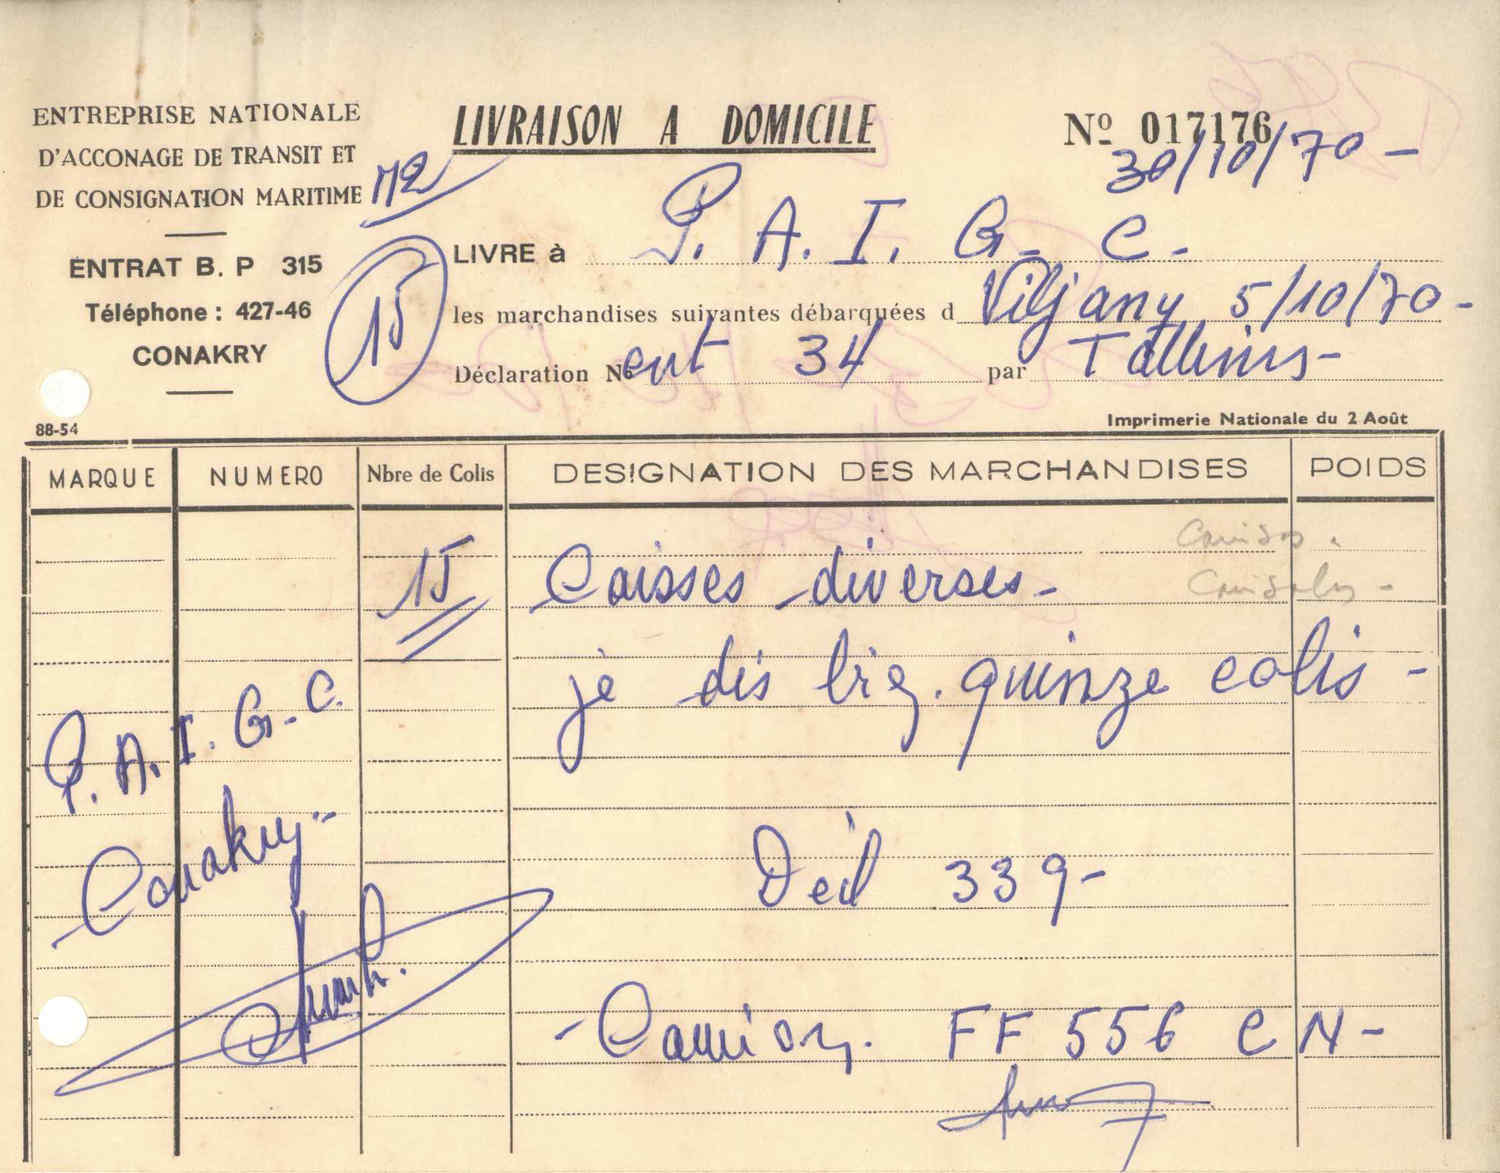 ENTREPRISE NATIONALE
D'ACCONAGE DE TRANSIT ET
DE CONSIGNATION MARITIME
ENTRAT B. P 315
Téléphone : 427-46
CONAKRY
88-54
LIVRAISON A DOMICILE
Nº 017176
30/10/70 -
15
LIVRE à P. A. I. G. C. -
les marchandises suivantes débarquées d Viljany 5/10/70 -
Déclaration Nº ent 34 par Tallinns -
Imprimerie Nationale du 2 Août
MARQUE NUMERO Nbre de Colis DESIGNATION DES MARCHANDISES POIDS
15 Caisses diverses -
je dis quinze colis -
P. A. I. G. C.
Conakry -
Décl 339 -
- Camion. FF 556 CN -